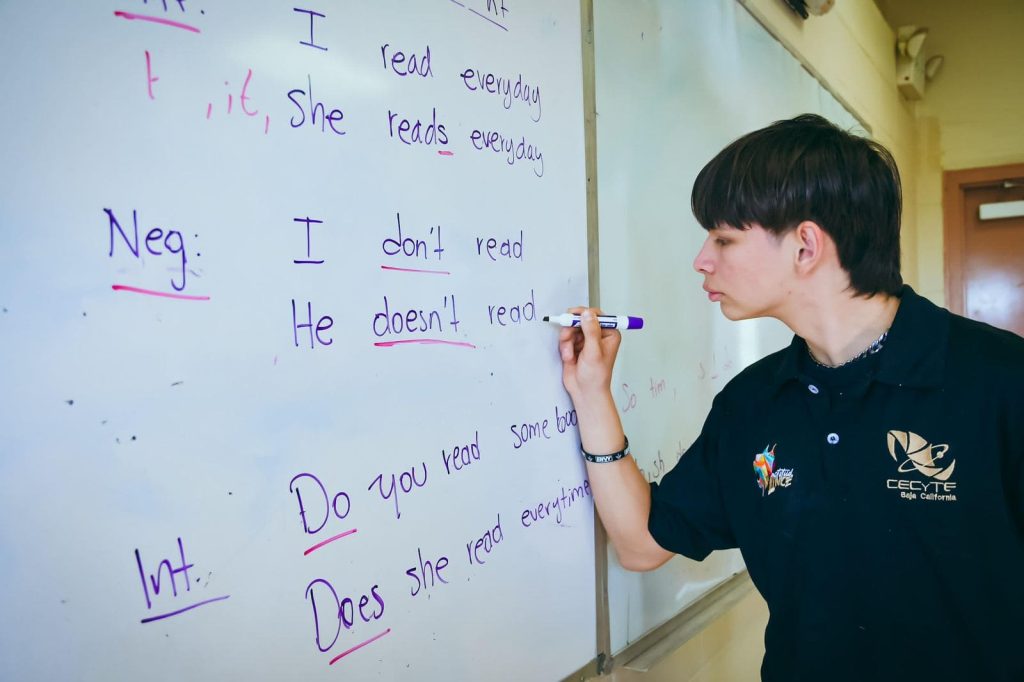 I read everyday
, it, she reads everyday
Neg: I don't read
He doesn't read
Do you read
Int. Does she read everytime
So
CECYTE
Baja California